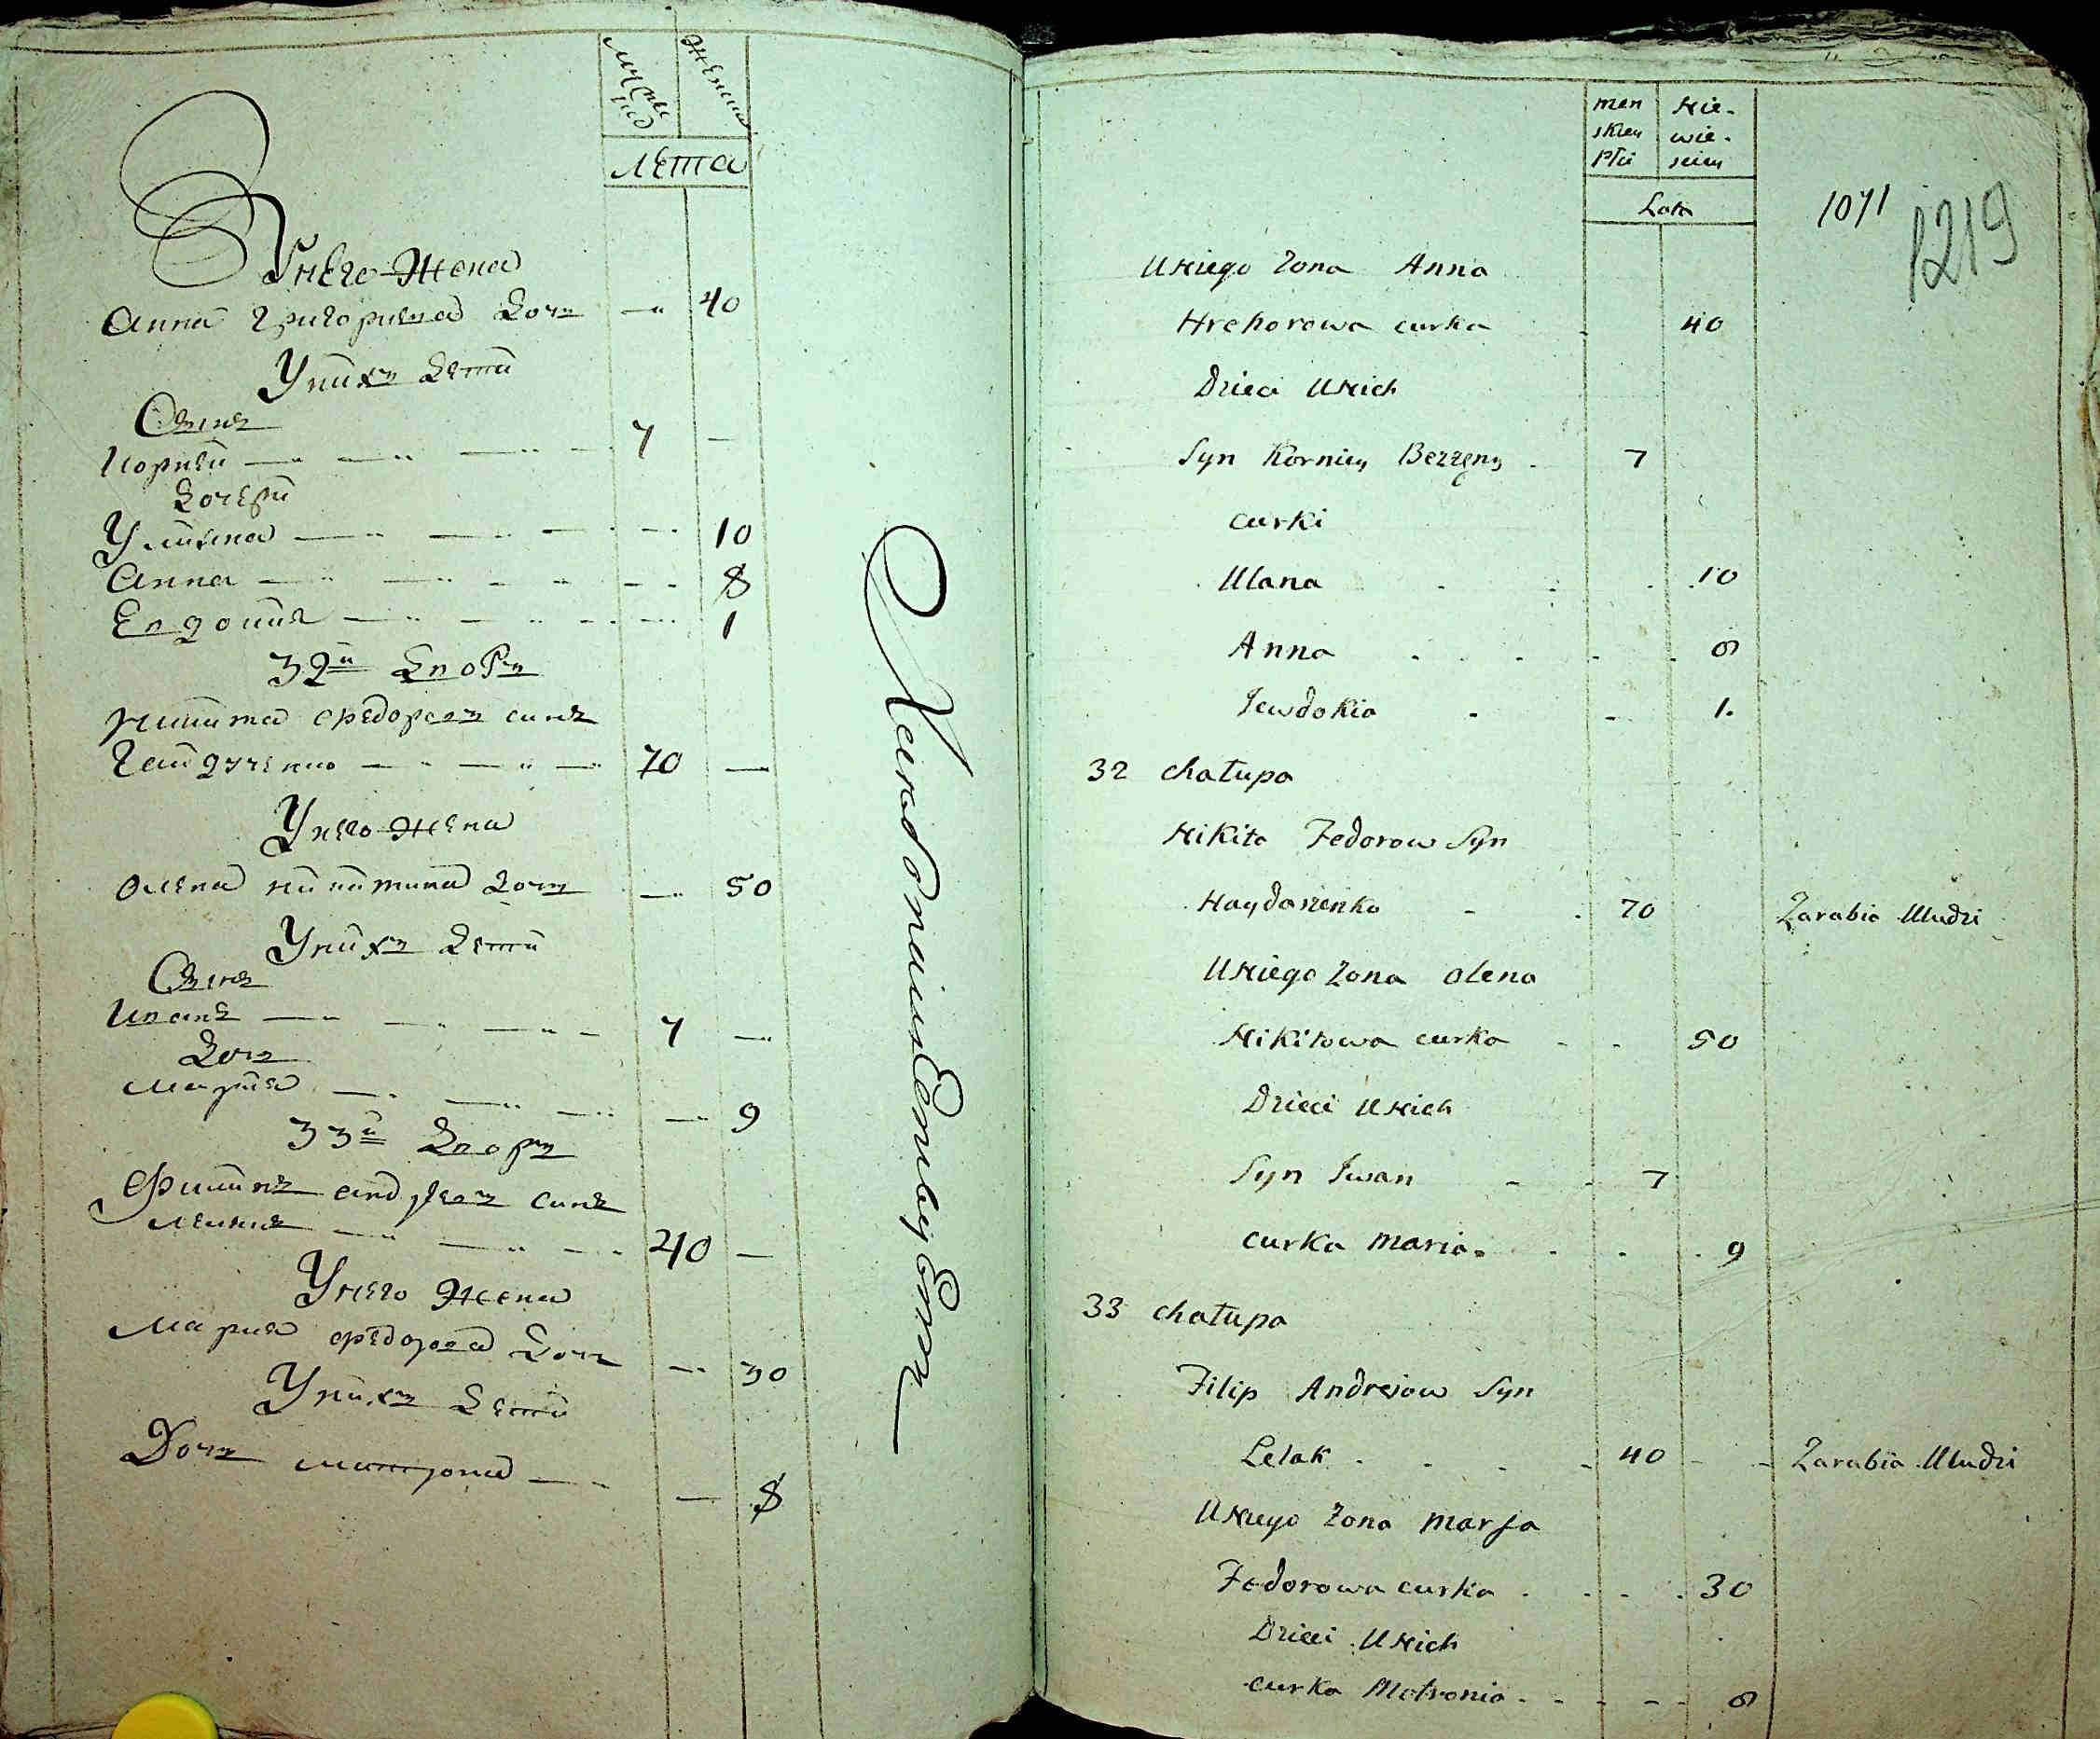 Мужеск
женска
лета
У него жена
Анна григориева дочь — 40
У них дети
Сынъ
Корней — 7 —
дочери
Улияна — 10
Анна — 8
Евдокия — 1
32й Дворъ
Никита федоровъ синъ
Гайдученко — 70 —
У него жена
Олена никитина дочь — 50
У них дети
Сынъ
Иванъ — 7 —
Дочь
Мария — 9
33й Дворъ
Филипъ андреевъ синъ
Лелякъ — 40 —
У него жена
Мария федорова дочь — 30
У них дети
Дочь матрона — 8
men skiey Płci
Nie- wie- sciey
Lata
1071
1219
U Niego Zona Anna
Hrehorowa curka 40
Dzieci U Nich
Syn Korniey Bezzęny 7
curki
Ulana 10
Anna 8
Jewdokia 1.
32 chałupa
Nikita Fedorow Syn
Haydarzenko 70 Zarabia U ludzi
U Niego Zona Olena
Nikitowa curka 50
Dzieci U Nich
Syn Iwan 7
curka Maria 9
33 chałupa
Filip Andrejow Syn
Lelak 40 Zarabia U ludzi
U Niego Zona Marja
Fedorowa curka 30
Dzieci U Nich
curka Motronia 8